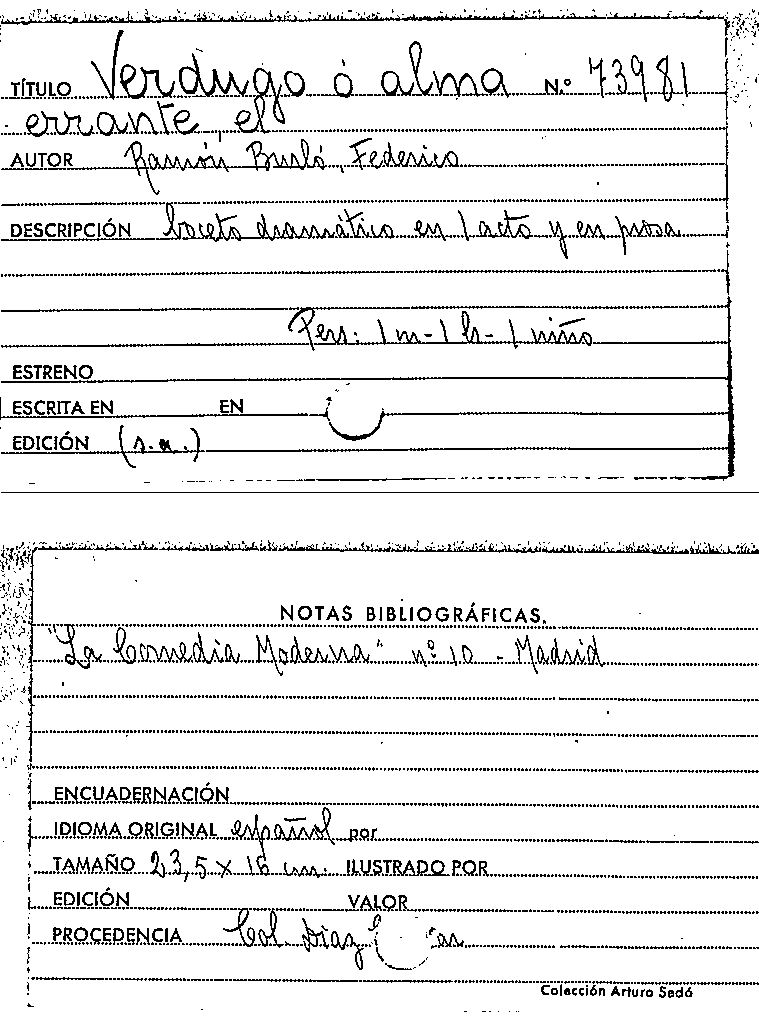 TÍTULO Verdugo ó alma N.º 73981
errante, el
AUTOR Ramón Burló, Federico
DESCRIPCIÓN boceto dramático en 1 acto y en prosa
Pers: 1 m - 1 h - 1 niño
ESTRENO
ESCRITA EN EN
EDICIÓN (s.a.)
NOTAS BIBLIOGRÁFICAS.
"La Comedia Moderna" nº 10 - Madrid
ENCUADERNACIÓN
IDIOMA ORIGINAL español por
TAMAÑO 23,5 x 16 cm. ILUSTRADO POR
EDICIÓN VALOR
PROCEDENCIA Col. Díaz
Colección Arturo Sedó